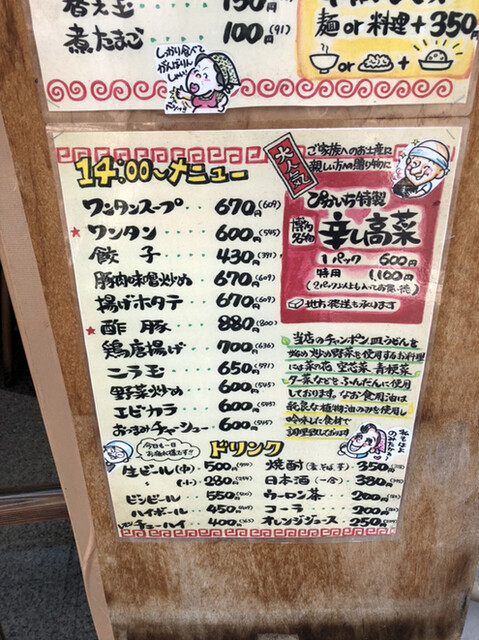 替え玉 150円
煮たまご 100円(91)
麺or料理+350円
or + 
しっかり食べて
がんばりん
しゃい
14:00〜メニュー
ワンタンスープ 670円(609)
★ワンタン 600円(545)
餃子 430円(391)
豚肉味噌炒め 670円(609)
揚げホタテ 670円(609)
★酢豚 880円(800)
鶏唐揚げ 700円(636)
ニラ玉 650円(591)
野菜炒め 600円(545)
エビカラ 600円(545)
おつまみチャーシュー 600円(545)
大人気
ご家族へのお土産に
親しい方への贈り物に
ぴかいち特製
博多名物
辛し高菜
1パック 600円
特用 1,100円
(2パック以上も入ってお買い徳)
地方発送も承ります
当店のチャンポン、皿うどんを
始め炒め野菜を使用するお料理
には菜の花、空芯菜、青梗菜、
ター菜などをふんだんに使用
しております。なお食用油は
純良な植物油のみを使用し
吟味した食材で
調理致しております
今日も一日
お疲れ様です!!
ドリンク
生ビール(中) 500円
〃 (小) 280円
ビンビール 550円
ハイボール 450円
チューハイ 400円
焼酎(麦・そば・芋) 350円
日本酒(一合) 380円
ウーロン茶 200円
コーラ 200円
オレンジジュース 250円